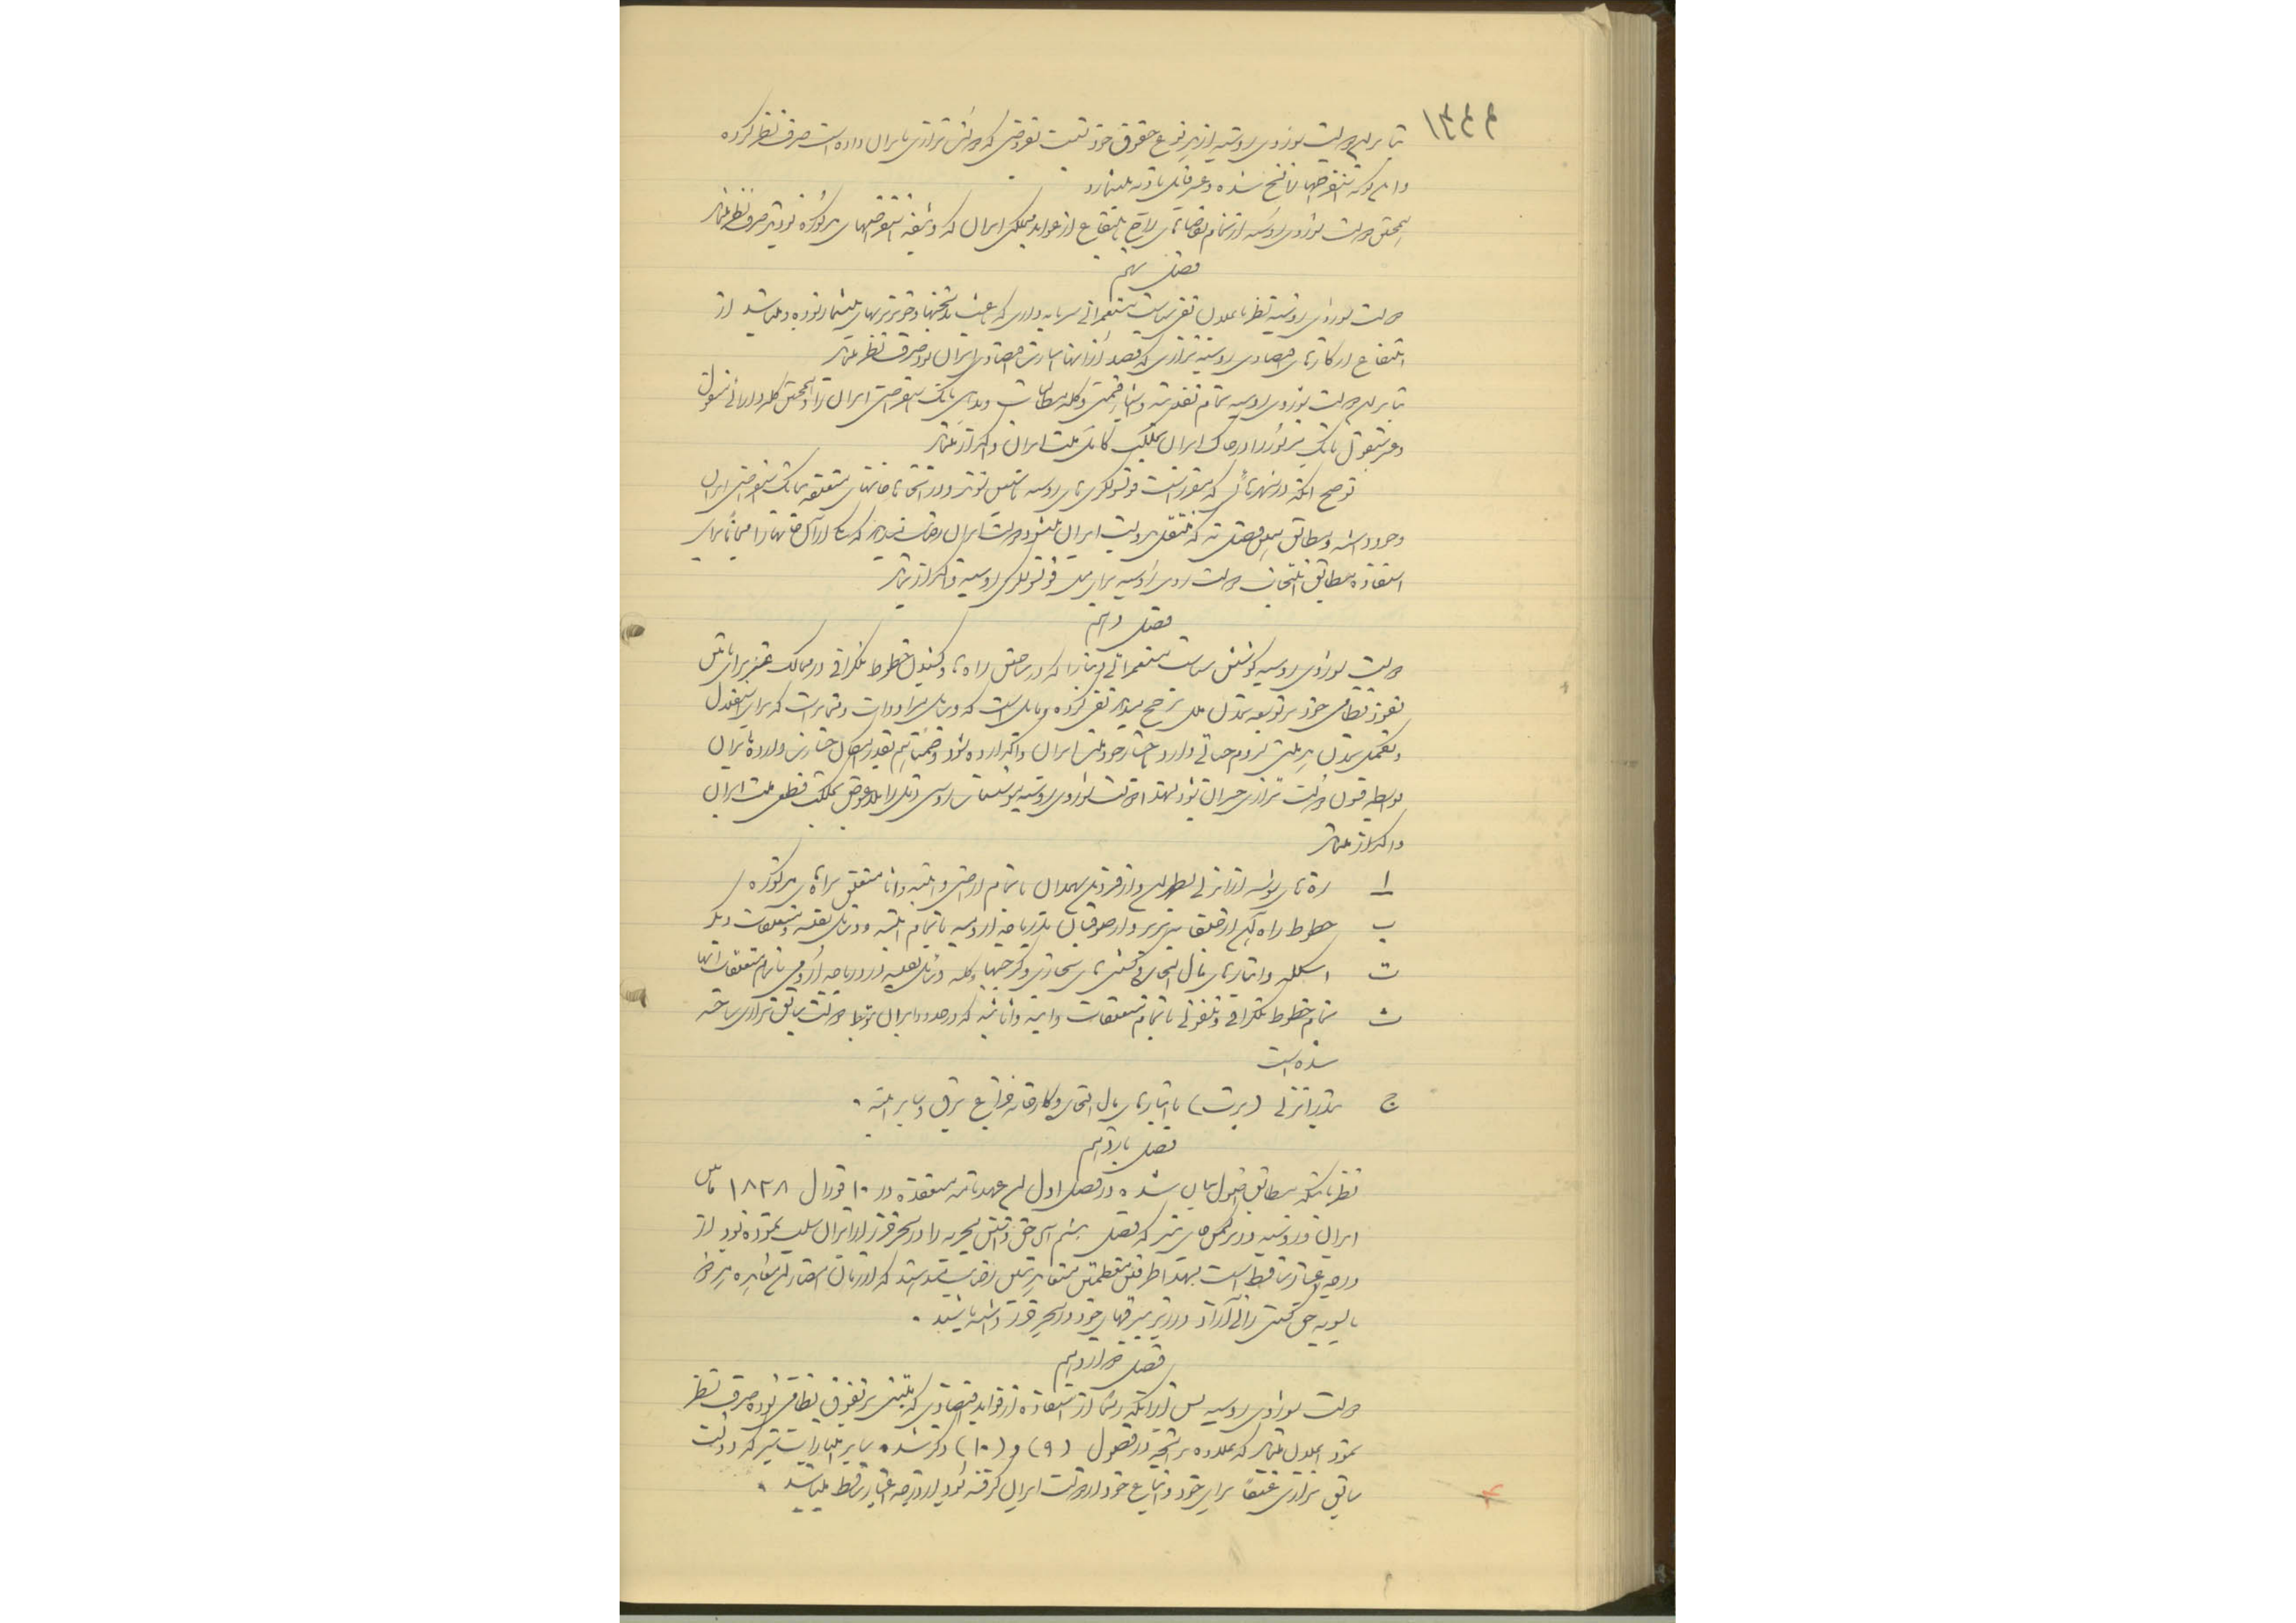 ۱۳۴۴
بنابراین دولت شوروی روسیه از هر نوع حقوق خود نسبت بقروضی که دولت تزاری بایران داده است صرف نظر کرده
و این گونه استقراضها را نسخ شده و غیر قابل تادیه میشمارد
همچنین دولت شوروی روسیه از تمام تقاضاهای راجع بانتفاع از عواید مملکتی ایران که وثیقه استقراضهای مذکوره بودند صرف نظر مینماید
فصل نهم
دولت شوروی روسیه نظر باعلان نفی سیاست مستعمراتی سرمایه داری که باعث بدبختیها و خونریزیهای بیشمار بوده و میباشد از
انتفاع از کارهای اقتصادی روسیه تزاری که قصد از آنها اسارت اقتصادی ایران بود صرف نظر مینماید
بنابراین دولت شوروی روسیه تمام نقدینه و اشیاء قیمتی و کلیه مطالبات و بدهی بانک استقراضی ایران را و همچنین کلیه دارائی منقول
و غیر منقول بانک مزبور را در خاک ایران بملکیت کامل ملت ایران واگذار مینماید
توضیح آنکه در شهرهائی که مقرر است قونسولگری های روسیه تاسیس شود و در آنجا خانه های متعلقه ببانک استقراضی ایران
وجود داشته و مطابق همین فصل نه که منتقل بدولت ایران میشود دولت ایران رضایت میدهد که یکی از آن خانه ها را مجاناً برای
استفاده مطابق انتخاب دولت شوروی روسیه برای محل قونسولگری روسیه واگذار نماید
فصل دهم
دولت شوروی روسیه کوشش سیاست مستعمراتی دنیا را که در ساختن راه ها و کشیدن خطوط تلگرافی در ممالک غیر برای تامین
نفوذ نظامی خود بر توسعه تمدن ملل ترجیح میداد نفی کرده و مایل است که وسایل مراودات و مخابرات که برای استقلال
و تکمیل تمدن هر ملتی لزوم حیاتی دارد در اختیار خود ملت ایران واگذارده شود و ضمناً هم بقدر امکان خسارت وارده بایران
بواسطه قشون دولت تزاری جبران شود لهذا دولت شوروی روسیه موسسات روسی ذیل را بلاعوض بملکیت قطعی ملت ایران
واگذار مینماید
ا راه های شوسه از انزلی بطهران و از قزوین بهمدان با تمام اراضی و ابنیه و اثاثیه متعلق براه های مذکوره
ب خطوط راه آهن از جلفا بتبریز و از صوفیان بدریاچه ارومیه با تمام ابنیه و وسایل نقلیه و متعلقات دیگر
ت اسکله و انبارهای مال التجاره و کشتی های تجارتی و کرجیها و کلیه وسائل نقلیه در دریاچه ارومی با تمام متعلقات آنها
ث تمام خطوط تلگرافی و تلفونی با تمام متعلقات و ابنیه و اثاثیه که در حدود ایران بتوسط دولت سابق تزاری ساخته
شده است
ج بندر انزلی (پرت) با انبارهای مال التجاره و کارخانه چراغ برق و سایر ابنیه .
فصل یازدهم
نظر باینکه مطابق اصول بیان شده در فصل اول این عهدنامه منعقده در ۱۰ فورال ۱۸۲۸ مابین
ایران و روسیه در ترکمن چای نیز که فصل هشتم آن حق داشتن بحریه را در بحر خزر از ایران سلب نموده بود از
درجه اعتبار ساقط است لهذا طرفین معظمتین متعاهدتین رضایت میدهند که از زمان امضاء این معاهده هر دو
بالسویه حق کشتی رانی آزاد در زیر بیرقهای خود در بحر خزر داشته باشند .
فصل دوازدهم
دولت شوروی روسیه پس از آنکه رسماً از استفاده از فواید اقتصادی که مبتنی بر تفوق نظامی بوده صرف نظر
نمود اعلان مینماید که علاوه بر آنچه در فصول (۹) و (۱۰) ذکر شده سایر امتیازات نیز که دولت
سابق تزاری عنفاً برای خود و اتباع خود از دولت ایران گرفته بود از درجه اعتبار ساقط میباشد .